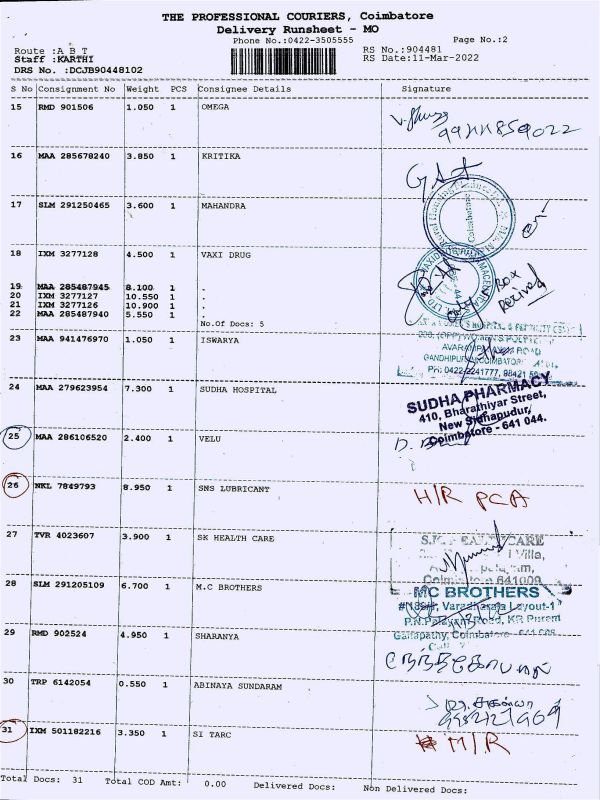 THE PROFESSIONAL COURIERS, Coimbatore
Delivery Runsheet - MO
Phone No.:0422-3505555 Page No.:2
Route :A B T RS No.:904481
Staff :KARTHI RS Date:11-Mar-2022
DRS No. :DCJB90448102
S No Consignment No Weight PCS Consignee Details Signature
15 RMD 901506 1.050 1 OMEGA
16 MAA 285678240 3.850 1 KRITIKA
17 SLM 291250465 3.600 1 MAHANDRA
18 IXM 3277128 4.500 1 VAXI DRUG
19 MAA 285487945 8.100 1 .
20 IXM 3277127 10.550 1 .
21 IXM 3277126 10.900 1 .
22 MAA 285487940 5.550 1 .
No.Of Docs: 5
Box
23 MAA 941476970 1.050 1 ISWARYA
GANDHIPUR
PH: 0422-2241777, 98421
24 MAA 279623954 7.300 1 SUDHA HOSPITAL
SUDHA PHARMACY
410, Bharathiyar Street,
New Sidhapudur,
Coimbatore - 641 044.
25 MAA 286106520 2.400 1 VELU
26 NKL 7849793 8.950 1 SNS LUBRICANT H/R PCA
27 TVR 4023607 3.900 1 SK HEALTH CARE
Villa,
Coimbatore 641009
28 SLM 291205109 6.700 1 M.C BROTHERS
MC BROTHERS
Varadharaja Layout-1
P.N.Palayam Road, KR Puram
Ganapathy, Coimbatore
29 RMD 902524 4.950 1 SHARANYA
30 TRP 6142054 0.550 1 ABINAYA SUNDARAM
31 IXM 501182216 3.350 1 SI TARC M/R
Total Docs: 31 Total COD Amt: 0.00 Delivered Docs: Non Delivered Docs: